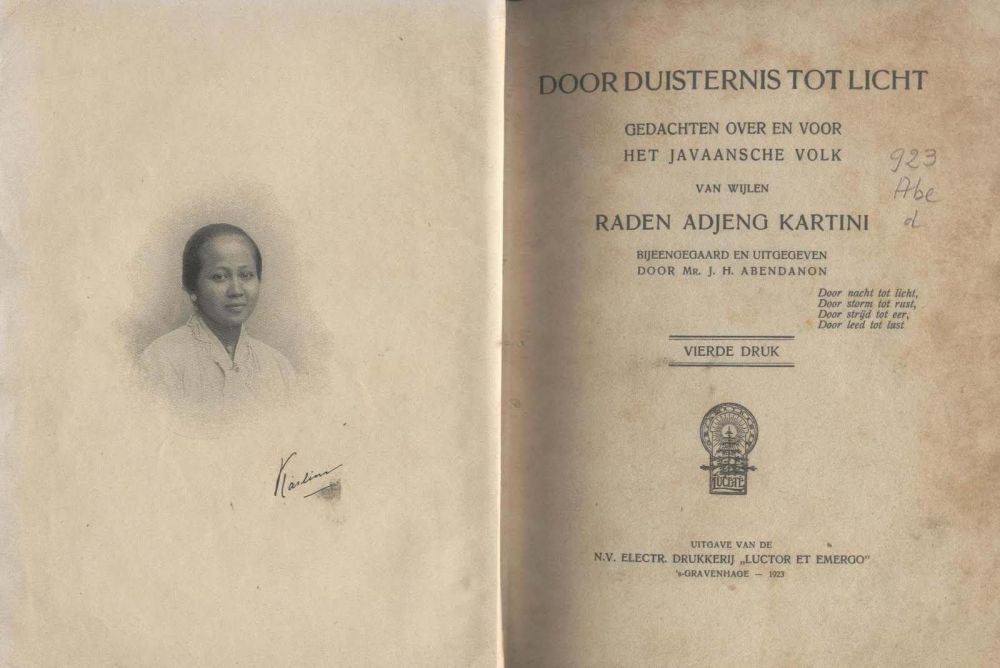 Kartini
DOOR DUISTERNIS TOT LICHT
GEDACHTEN OVER EN VOOR
HET JAVAANSCHE VOLK
VAN WIJLEN
RADEN ADJENG KARTINI
BIJEENGEGAARD EN UITGEGEVEN
DOOR MR. J. H. ABENDANON
923
Abe
d
Door nacht tot licht,
Door storm tot rust,
Door strijd tot eer,
Door leed tot lust
VIERDE DRUK
LUCERE
UITGAVE VAN DE
N.V. ELECTR. DRUKKERIJ „LUCTOR ET EMERGO”
's-GRAVENHAGE — 1923